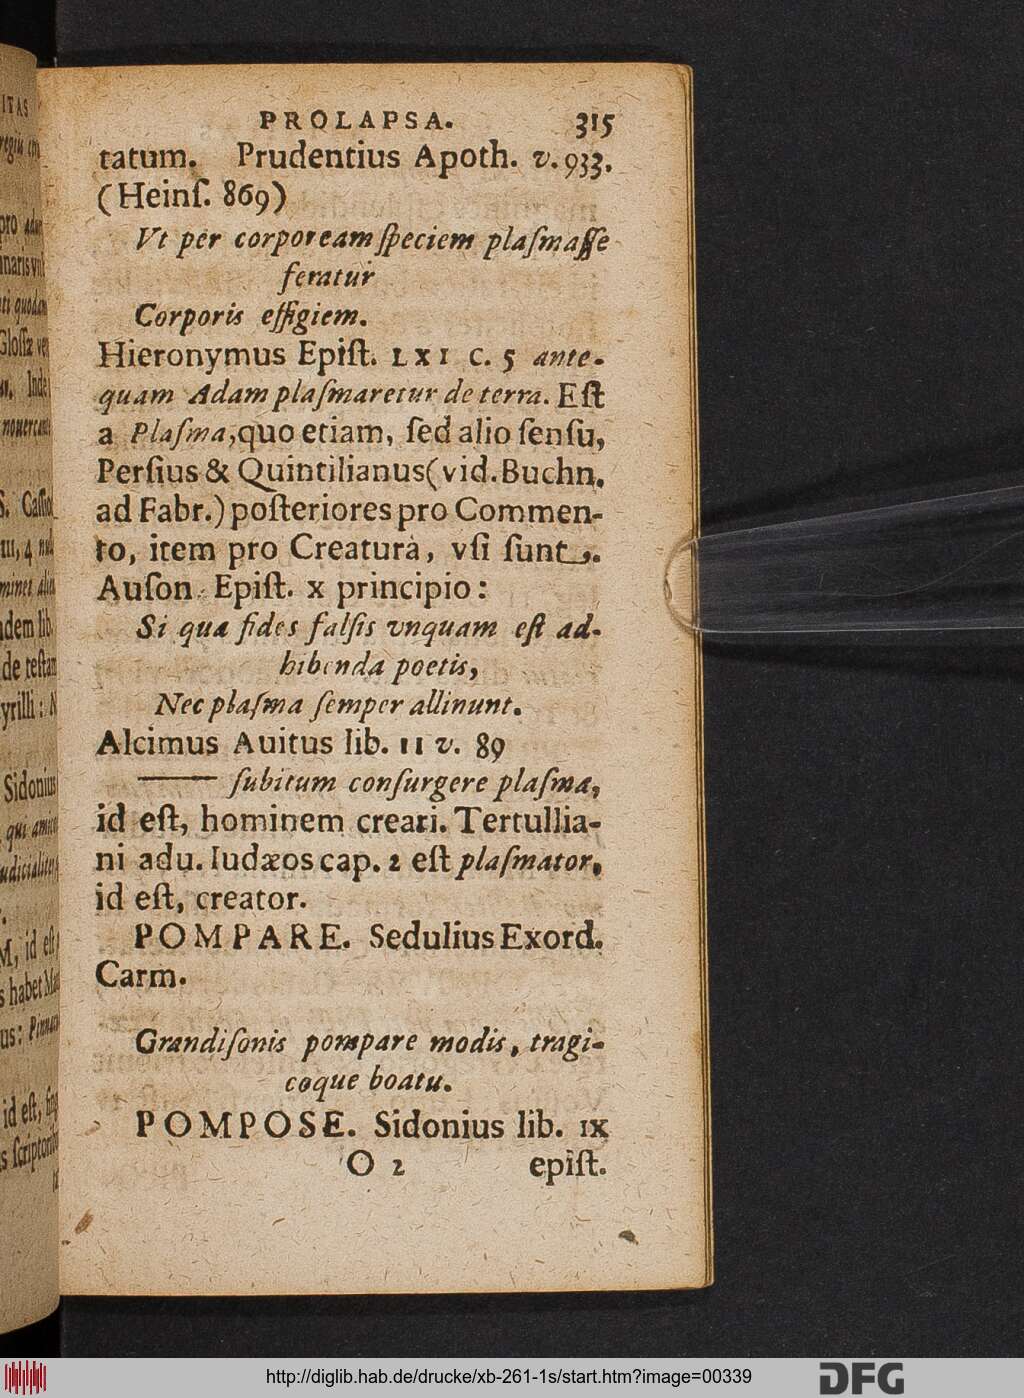 PROLAPSA. 315
tatum. Prudentius Apoth. v. 933.
(Heinſ. 869)
Vt per corpoream ſpeciem plaſmaſſe
feratur
Corporis effigiem.
Hieronymus Epiſt. LXI C. 5 ante-
quam Adam plaſmaretur de terra. Eſt
a Plaſma, quo etiam, ſed alio ſenſu,
Perſius & Quintilianus (vid. Buchn.
ad Fabr.) poſteriores pro Commen-
to, item pro Creaturâ, vſi ſunt.
Auſon. Epiſt. x principio:
Si qua fides falſis vnquam eſt ad-
hibenda poetis,
Nec plaſma ſemper allinunt.
Alcimus Auitus lib. II v. 89
—— ſubitum conſurgere plaſma,
id eſt, hominem creari. Tertullia-
ni adu. Iudæos cap. 2 eſt plaſmator,
id eſt, creator.
POMPARE. Sedulius Exord.
Carm.
Grandiſonis pompare modis, tragi-
coque boatu.
POMPOSE. Sidonius lib. IX
O 2 epiſt.
http://diglib.hab.de/drucke/xb-261-1s/start.htm?image=00339
DFG